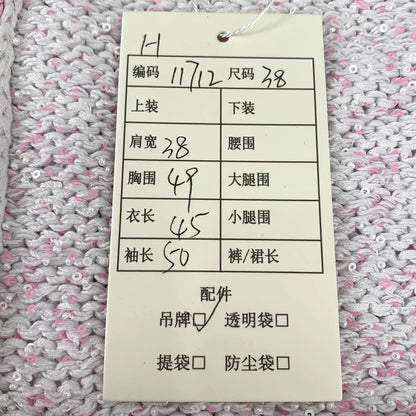 H
编码 11712 尺码 38
上装 下装
肩宽 38 腰围
胸围 49 大腿围
衣长 45 小腿围
袖长 50 裤/裙长
配件
吊牌☑ 透明袋□
提袋□ 防尘袋□